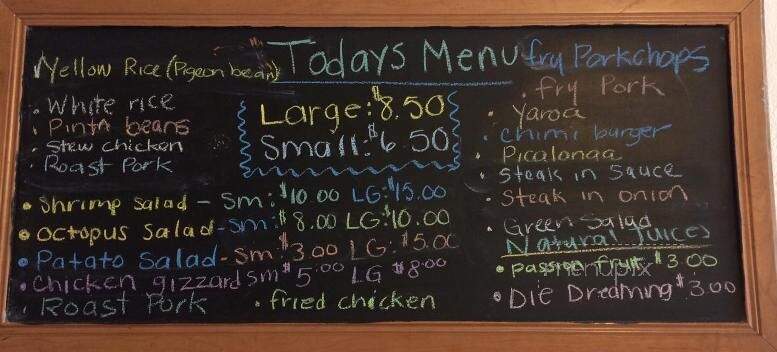 Todays Menu
Yellow Rice (Pigeon bean)
• White rice
• Pinta beans
• Stew chicken
• Roast Pork
Large: $8.50
Small: $6.50
• Shrimp Salad - Sm: $10.00 LG: $15.00
• Octopus Salad - Sm: $8.00 LG: $10.00
• Patato Salad - Sm: $3.00 LG: $5.00
• Chicken gizzard Sm $5.00 LG $8.00
Roast Pork • fried chicken
fry Porkchops
• fry Pork
• Yaroa
• chimi burger
• Picalonga
• Steak in Sauce
• Steak in onion
• Green Salad
Natural Juices
• passion fruit $3.00
• Die Dreaming $3.00
menupix